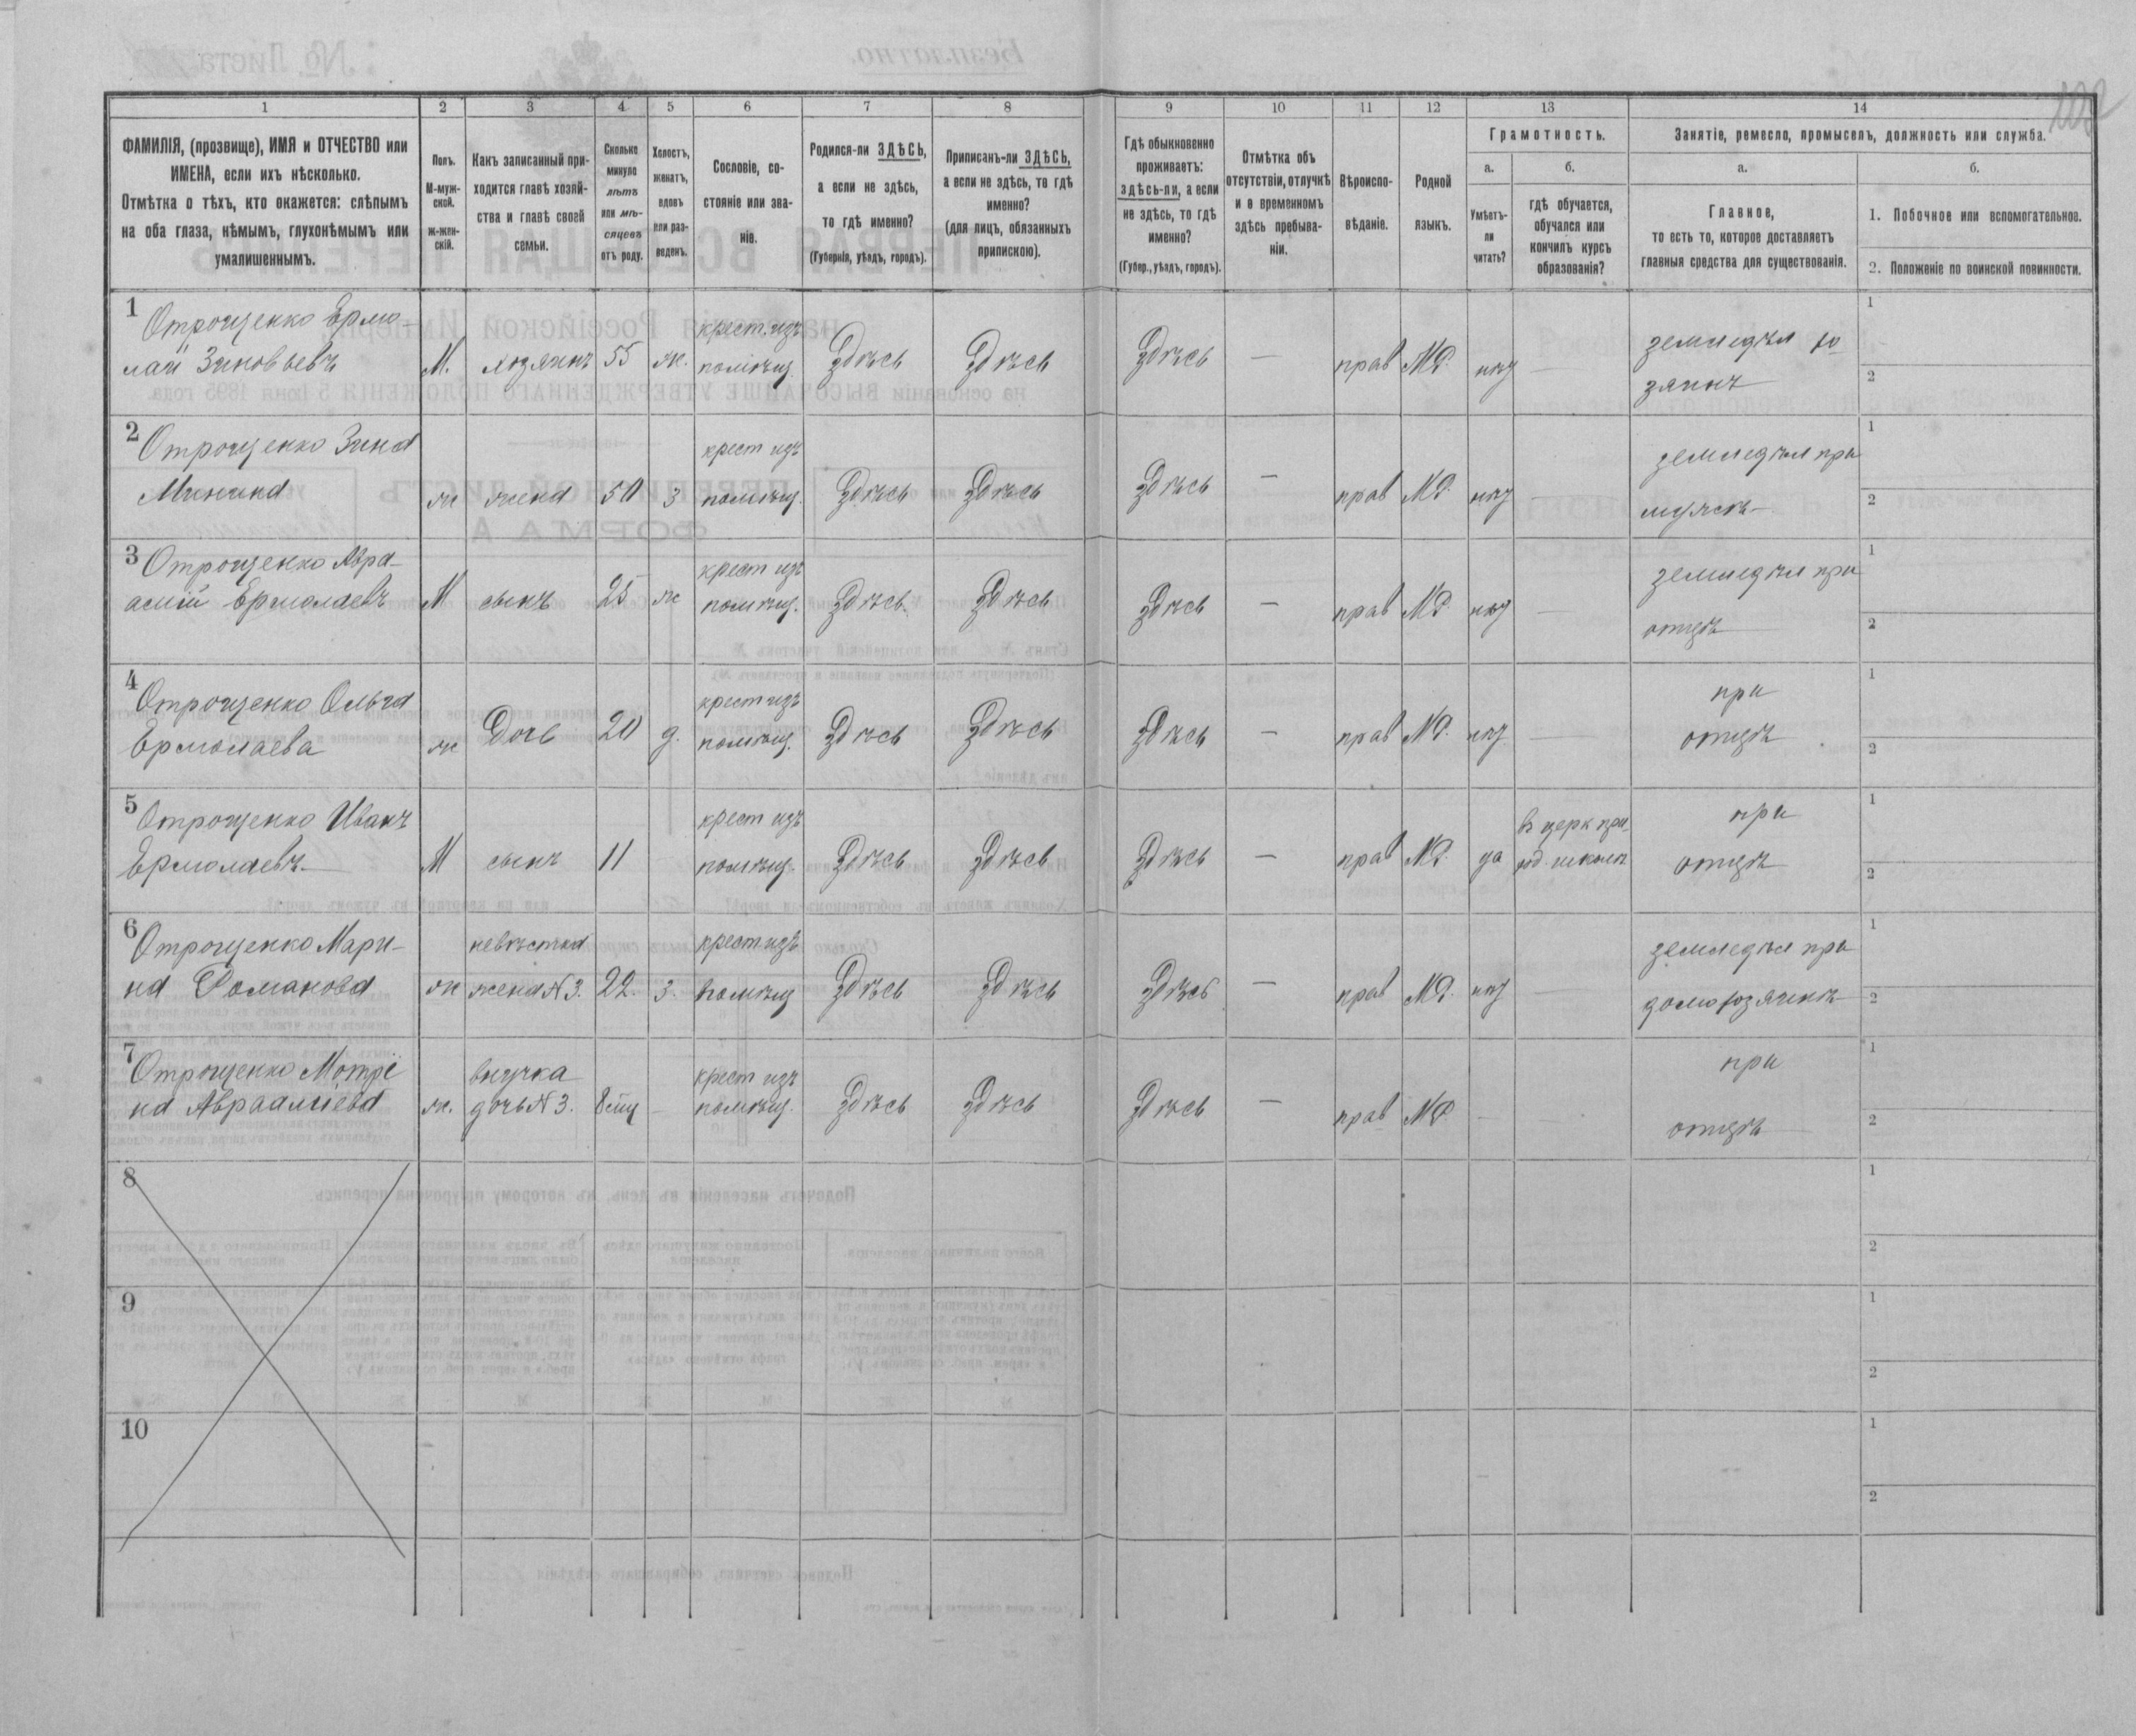 1 2 3 4 5 6 7 8 9 10 11 12 13 14
ФАМИЛІЯ, (прозвище), ИМЯ и ОТЧЕСТВО или
ИМЕНА, если ихъ нѣсколько.
Отмѣтка о тѣхъ, кто окажется: слѣпымъ
на оба глаза, нѣмымъ, глухонѣмымъ или
умалишеннымъ.
Полъ.
М-муж-
ской.
ж-жен-
скій.
Какъ записанный при-
ходится главѣ хозяй-
ства и главѣ своей
семьи.
Сколько
минуло
лѣтъ
или мѣ-
сяцевъ
отъ роду.
Холостъ,
женатъ,
вдовъ
или раз-
веденъ.
Сословіе, со-
стояніе или зва-
ніе.
Родился-ли ЗДѢСЬ,
а если не здѣсь,
то гдѣ именно?
(Губернія, уѣздъ, городъ).
Приписанъ-ли ЗДѢСЬ,
а если не здѣсь, то гдѣ
именно?
(для лицъ, обязанныхъ
припискою).
Гдѣ обыкновенно
проживаетъ:
здѣсь-ли, а если
не здѣсь, то гдѣ
именно?
(Губер., уѣздъ, городъ).
Отмѣтка объ
отсутствіи, отлучкѣ
и о временномъ
здѣсь пребыва-
ніи.
Вѣроиспо-
вѣданіе.
Родной
языкъ.
Грамотность.
а.
Умѣетъ-
ли
читать?
б.
гдѣ обучается,
обучался или
кончилъ курсъ
образованія?
Занятіе, ремесло, промыселъ, должность или служба.
а.
Главное,
то есть то, которое доставляетъ
главныя средства для существованія.
б.
1. Побочное или вспомогательное.
2. Положеніе по воинской повинности.
1 Отрощенко Ермо-
лай Зиновьевъ
М. хозяинъ 55 ж.
крест. изъ
помѣщ.
здѣсь здѣсь здѣсь — прав МР. нѣт —
земледѣл хо
зяинъ
1
2
2 Отрощенко Зина
Минина
ж жена 50 з
крест изъ
помѣщ.
здѣсь здѣсь здѣсь — прав МР. нѣт —
земледѣл при
мужѣ
1
2
3 Отрощенко Авра-
амій Ермолаевъ
М сынъ 25 ж
крест изъ
помѣщ.
здѣсь здѣсь здѣсь — прав МР нѣт —
земледѣл при
отцѣ
1
2
4 Отрощенко Ольга
Ермолаева
ж Дочь 20 д.
крест изъ
помѣщ.
здѣсь здѣсь здѣсь — прав МР. нѣт —
при
отцѣ
1
2
5 Отрощенко Иванъ
Ермолаевъ
М сынъ 11
крест изъ
помѣщ.
здѣсь здѣсь здѣсь — прав МР. да
в церк при
ход. школѣ
при
отцѣ
1
2
6 Отрощенко Мари-
на Романова
ж
невѣстка
жена №3. 22. з.
крест изъ
помѣщ
здѣсь здѣсь здѣсь — прав МР. нѣт —
земледѣл при
домохозяинѣ
1
2
7 Отрощенко Мотрі
на Авраамиева
ж.
внучка
дочь №3. —
крест изъ
помѣщ.
здѣсь здѣсь здѣсь — прав МР — —
при
отцѣ
1
2
8
1
2
9
1
2
10
1
2